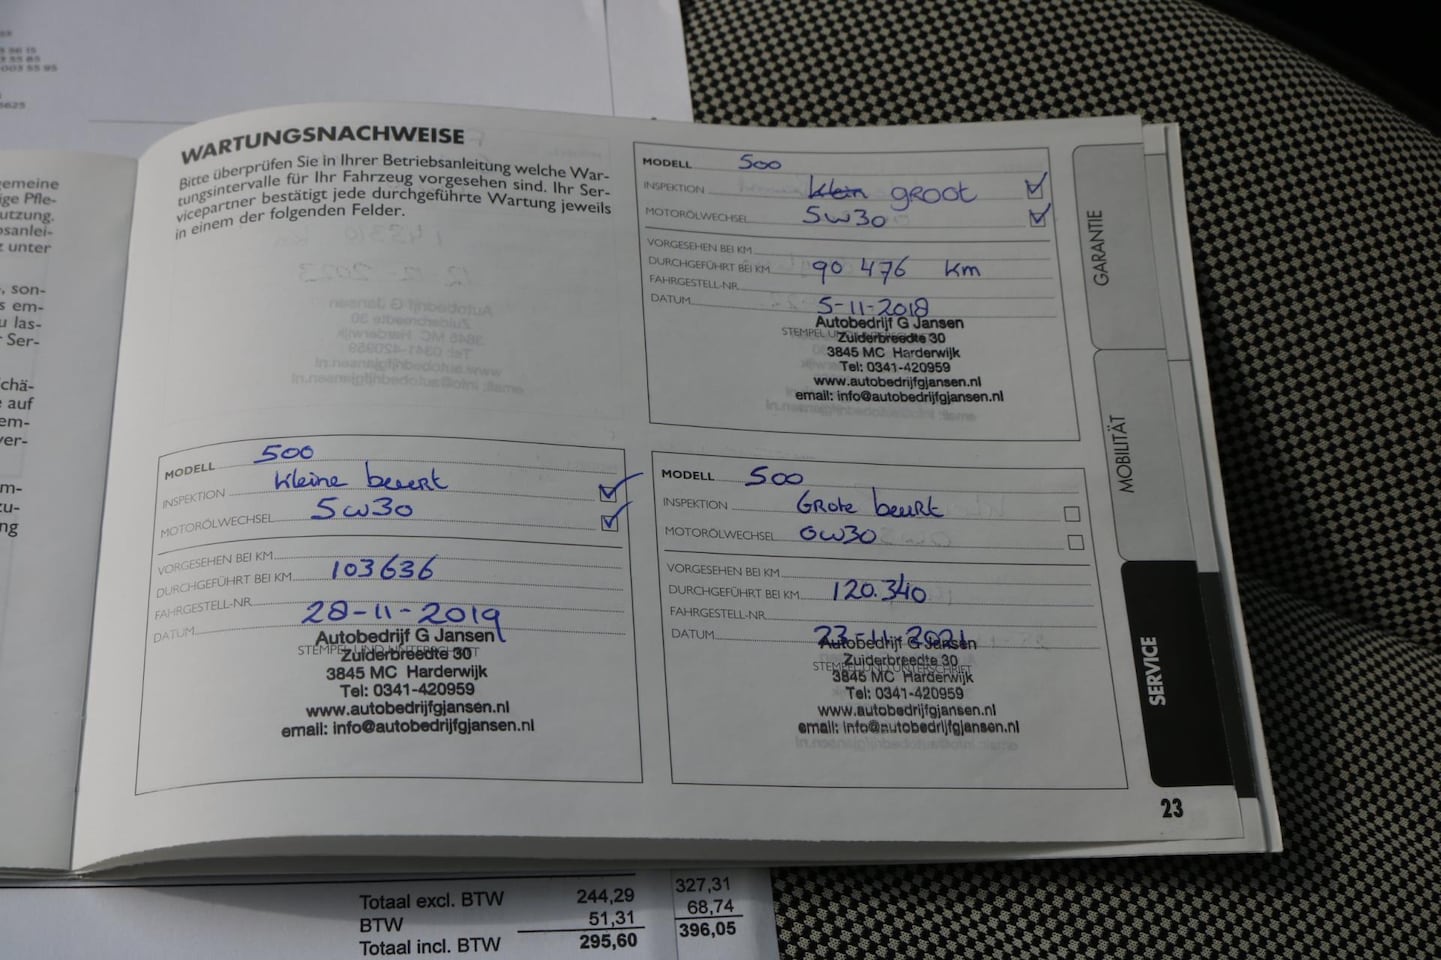 WARTUNGSNACHWEISE
Bitte überprüfen Sie in Ihrer Betriebsanleitung welche War-
tungsintervalle für Ihr Fahrzeug vorgesehen sind. Ihr Ser-
vicepartner bestätigt jede durchgeführte Wartung jeweils
in einem der folgenden Felder.
MODELL 500
INSPEKTION klein GROOT
MOTORÖLWECHSEL 5W30
VORGESEHEN BEI KM
DURCHGEFÜHRT BEI KM 90 476 km
FAHRGESTELL-NR.
DATUM 5-11-2018
Autobedrijf G Jansen
Zuiderbreedte 30
3845 MC Harderwijk
Tel: 0341-420959
www.autobedrijfgjansen.nl
email: info@autobedrijfgjansen.nl
MODELL 500
INSPEKTION kleine beurt
MOTORÖLWECHSEL 5W30
VORGESEHEN BEI KM
DURCHGEFÜHRT BEI KM 103636
FAHRGESTELL-NR.
DATUM 28-11-2019
Autobedrijf G Jansen
STEMPEL UND UNTERSCHRIFT
Zuiderbreedte 30
3845 MC Harderwijk
Tel: 0341-420959
www.autobedrijfgjansen.nl
email: info@autobedrijfgjansen.nl
MODELL 500
INSPEKTION Grote beurt
MOTORÖLWECHSEL 0W30
VORGESEHEN BEI KM
DURCHGEFÜHRT BEI KM 120.340
FAHRGESTELL-NR.
DATUM 23-11-2021
Autobedrijf G Jansen
Zuiderbreedte 30
STEMPEL UND UNTERSCHRIFT
3845 MC Harderwijk
Tel: 0341-420959
www.autobedrijfgjansen.nl
email: info@autobedrijfgjansen.nl
GARANTIE
MOBILITÄT
SERVICE
23
gemeine
ige Pfle-
utzung.
osanlei-
unter
, son-
s em-
u las-
Ser-
chä-
auf
em-
ver-
m-
zu-
ng
Totaal excl. BTW 244,29 327,31
BTW 51,31 68,74
Totaal incl. BTW 295,60 396,05